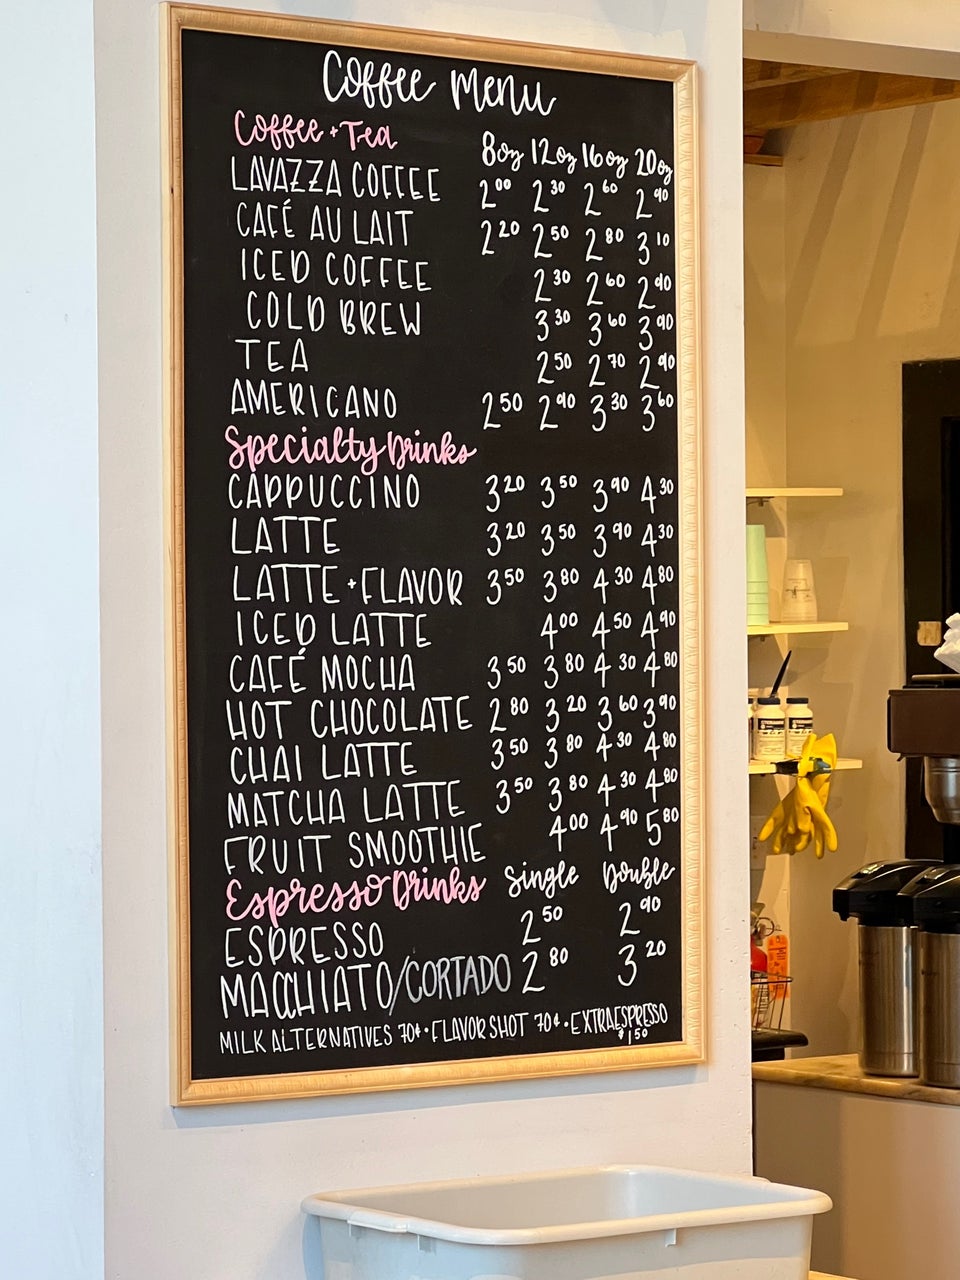 Coffee Menu
Coffee + Tea 8oz 12oz 16oz 20oz
LAVAZZA COFFEE 2⁰⁰ 2³⁰ 2⁶⁰ 2⁹⁰
CAFÉ AU LAIT 2²⁰ 2⁵⁰ 2⁸⁰ 3¹⁰
ICED COFFEE 2³⁰ 2⁶⁰ 2⁹⁰
COLD BREW 3³⁰ 3⁶⁰ 3⁹⁰
TEA 2⁵⁰ 2⁷⁰ 2⁹⁰
AMERICANO 2⁵⁰ 2⁹⁰ 3³⁰ 3⁶⁰
Specialty Drinks
CAPPUCCINO 3²⁰ 3⁵⁰ 3⁹⁰ 4³⁰
LATTE 3²⁰ 3⁵⁰ 3⁹⁰ 4³⁰
LATTE + FLAVOR 3⁵⁰ 3⁸⁰ 4³⁰ 4⁸⁰
ICED LATTE 4⁰⁰ 4⁵⁰ 4⁹⁰
CAFÉ MOCHA 3⁵⁰ 3⁸⁰ 4³⁰ 4⁸⁰
HOT CHOCOLATE 2⁸⁰ 3²⁰ 3⁶⁰ 3⁹⁰
CHAI LATTE 3⁵⁰ 3⁸⁰ 4³⁰ 4⁸⁰
MATCHA LATTE 3⁵⁰ 3⁸⁰ 4³⁰ 4⁸⁰
FRUIT SMOOTHIE 4⁰⁰ 4⁹⁰ 5⁸⁰
Espresso Drinks Single Double
ESPRESSO 2⁵⁰ 2⁹⁰
MACCHIATO/CORTADO 2⁸⁰ 3²⁰
MILK ALTERNATIVES 70¢ • FLAVOR SHOT 70¢ • EXTRA ESPRESSO
$1⁵⁰